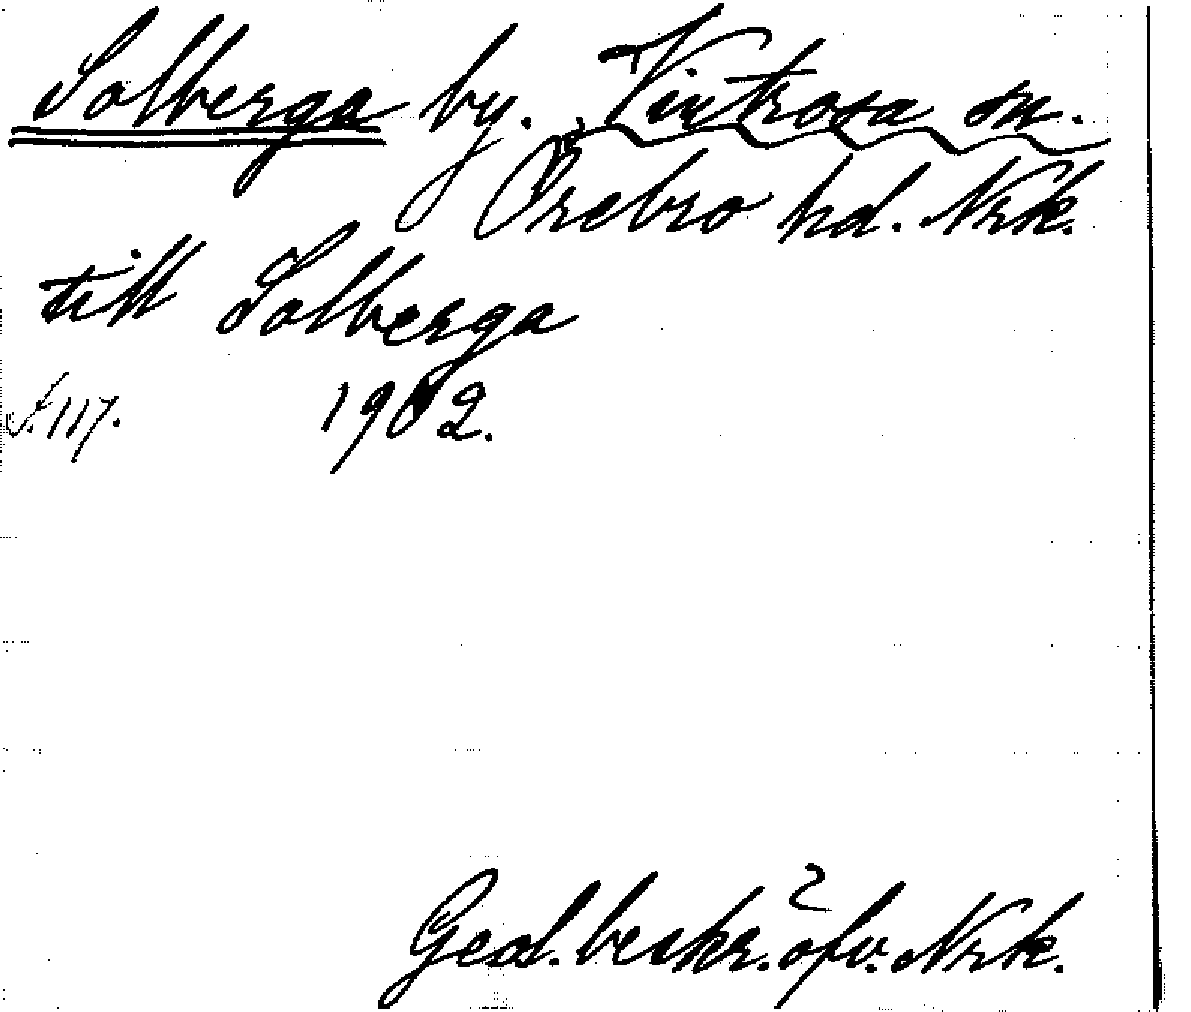 Solberga by. Vintrosa sn.
Örebro hd. Nrk.
till Solberga
S. 117. 1902.
Geol. beskr. öfv. Nrk.